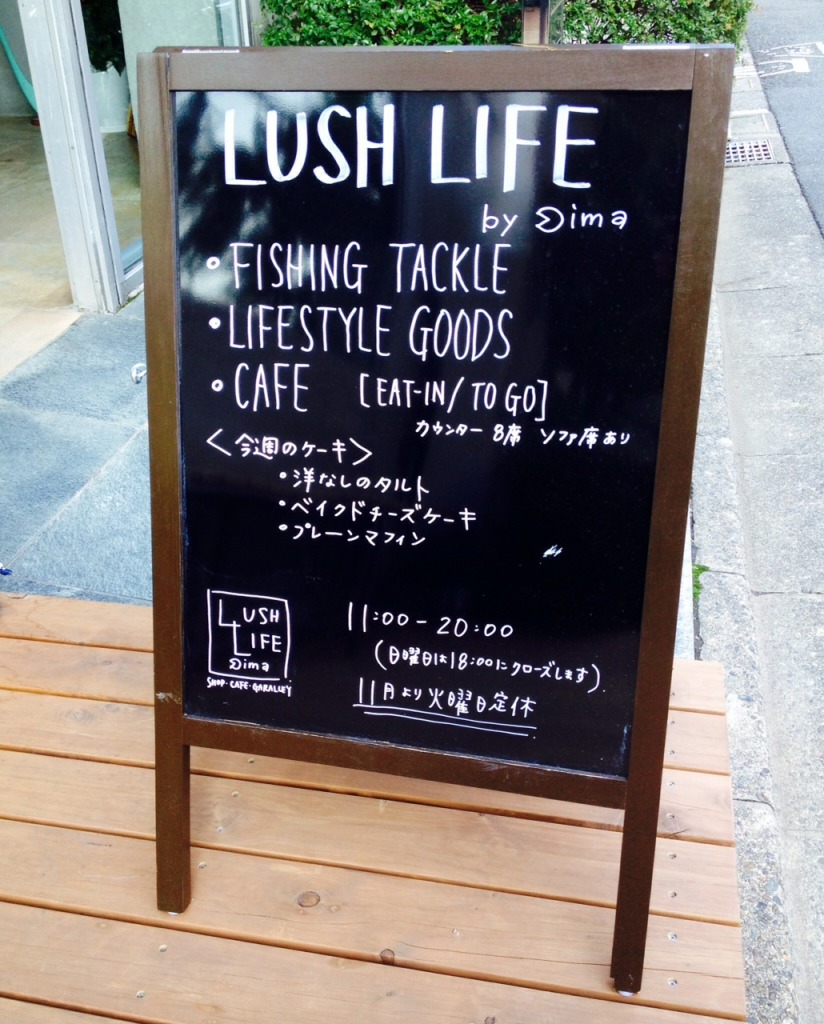 LUSH LIFE
by Dima
• FISHING TACKLE
• LIFESTYLE GOODS
• CAFE [EAT-IN/TO GO]
カウンター 8席 ソファ席あり
<今週のケーキ>
• 洋なしのタルト
• ベイクドチーズケーキ
• プレーンマフィン
LUSH
LIFE
Dima
SHOP・CAFE・GARALLEY
11:00-20:00
(日曜日は18:00にクローズします)
11月より火曜日定休